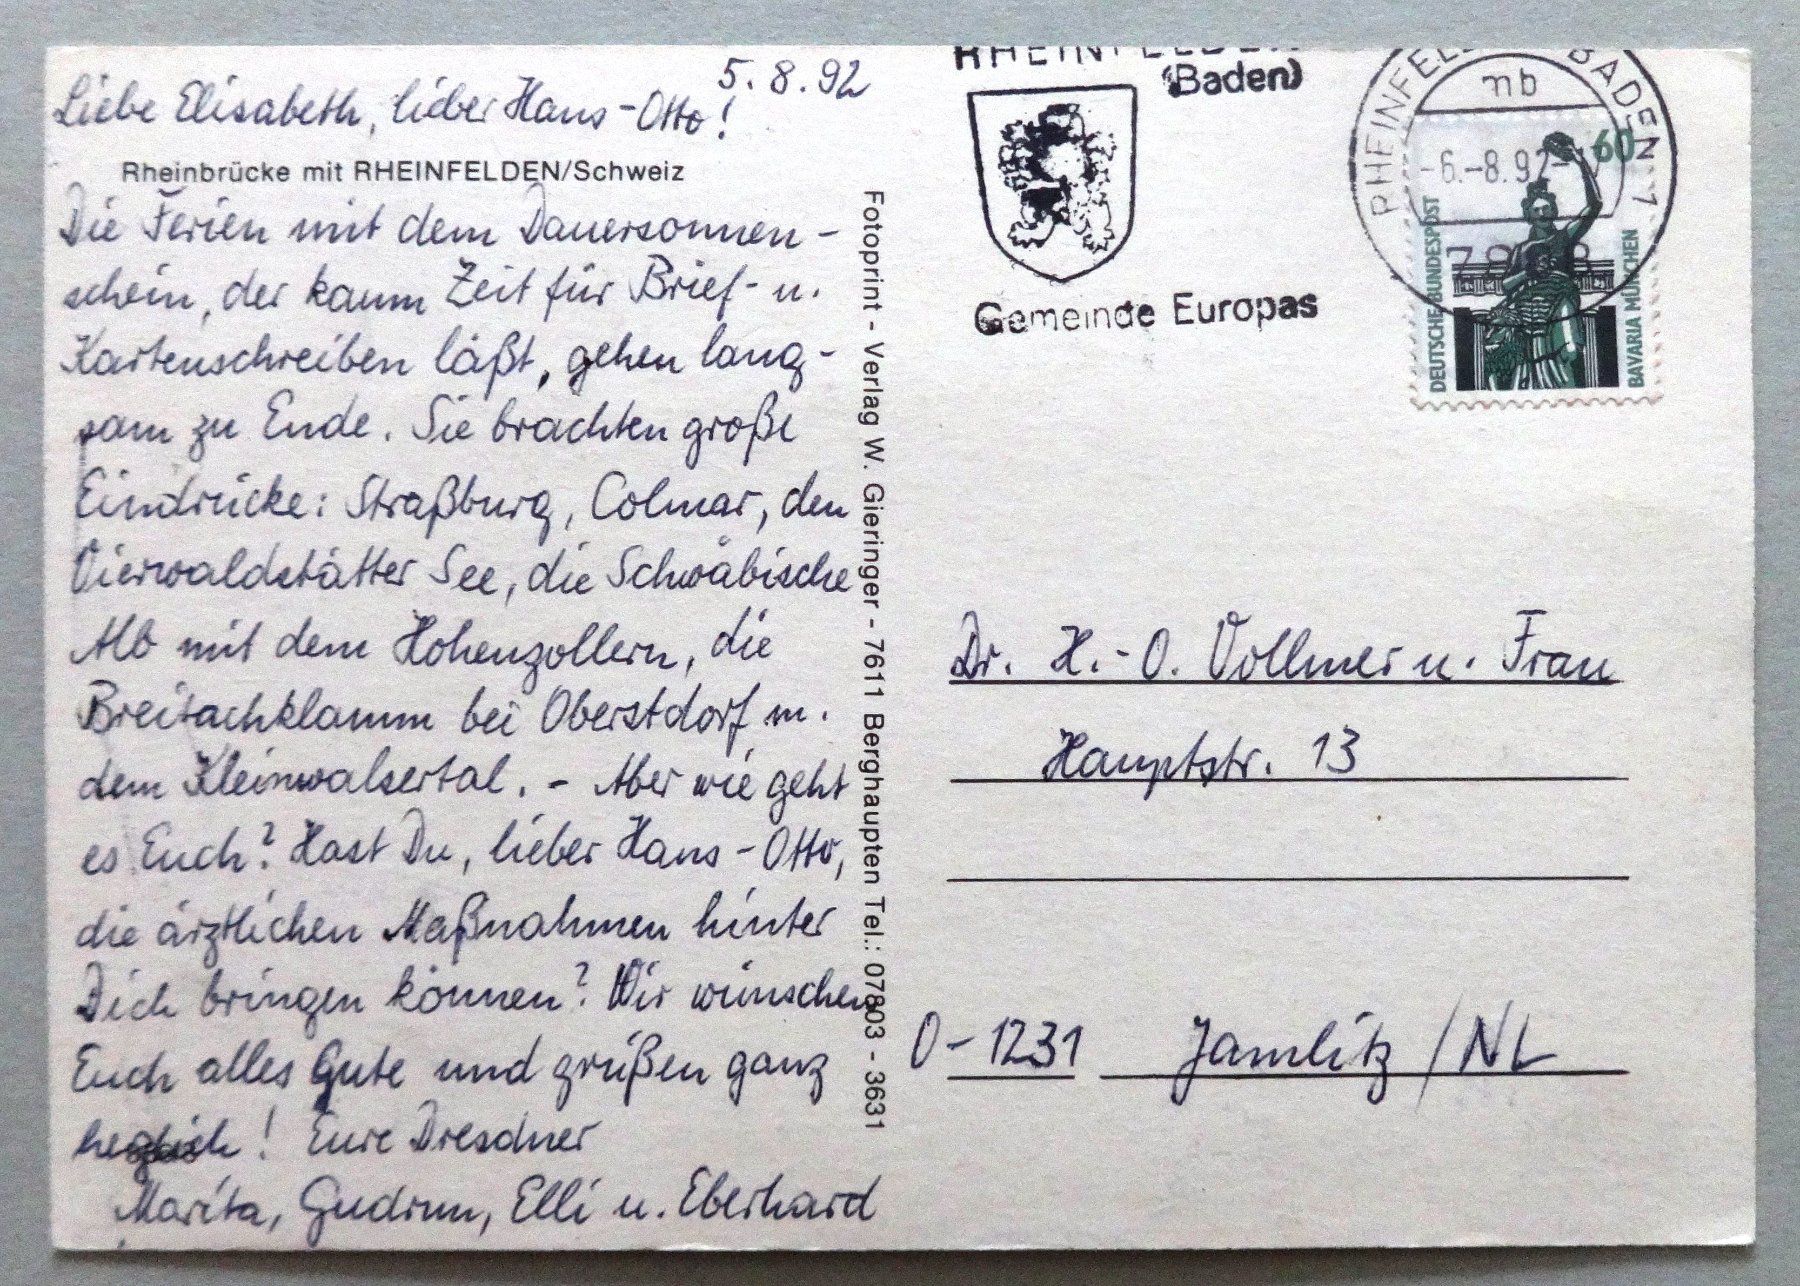 5.8.92
Liebe Elisabeth, lieber Hans-Otto!
Rheinbrücke mit RHEINFELDEN/Schweiz
Die Ferien mit dem Dauersonnen-
schein, der kaum Zeit für Brief- u.
Kartenschreiben läßt, gehen lang-
sam zu Ende. Sie brachten große
Eindrücke: Straßburg, Colmar, den
Vierwaldstätter See, die Schwäbische
Alb mit dem Hohenzollern, die
Breitachklamm bei Oberstdorf m.
dem Kleinwalsertal. - Aber wie geht
es Euch? Hast Du, lieber Hans-Otto,
die ärztlichen Maßnahmen hinter
Dich bringen können? Wir wünschen
Euch alles Gute und grüßen ganz
herzlich! Eure Dresdner
Marita, Gudrun, Elli u. Eberhard
Fotoprint - Verlag W. Gieringer - 7611 Berghaupten Tel.: 07803 - 3631
RHEINFELDEN
(Baden)
Gemeinde Europas
RHEINFELDEN, BADEN 1
mb
-6.-8.92
60
DEUTSCHE BUNDESPOST
BAVARIA MÜNCHEN
Dr. H.-O. Vollmer u. Frau
Hauptstr. 13
O-1231 Jamlitz/NL